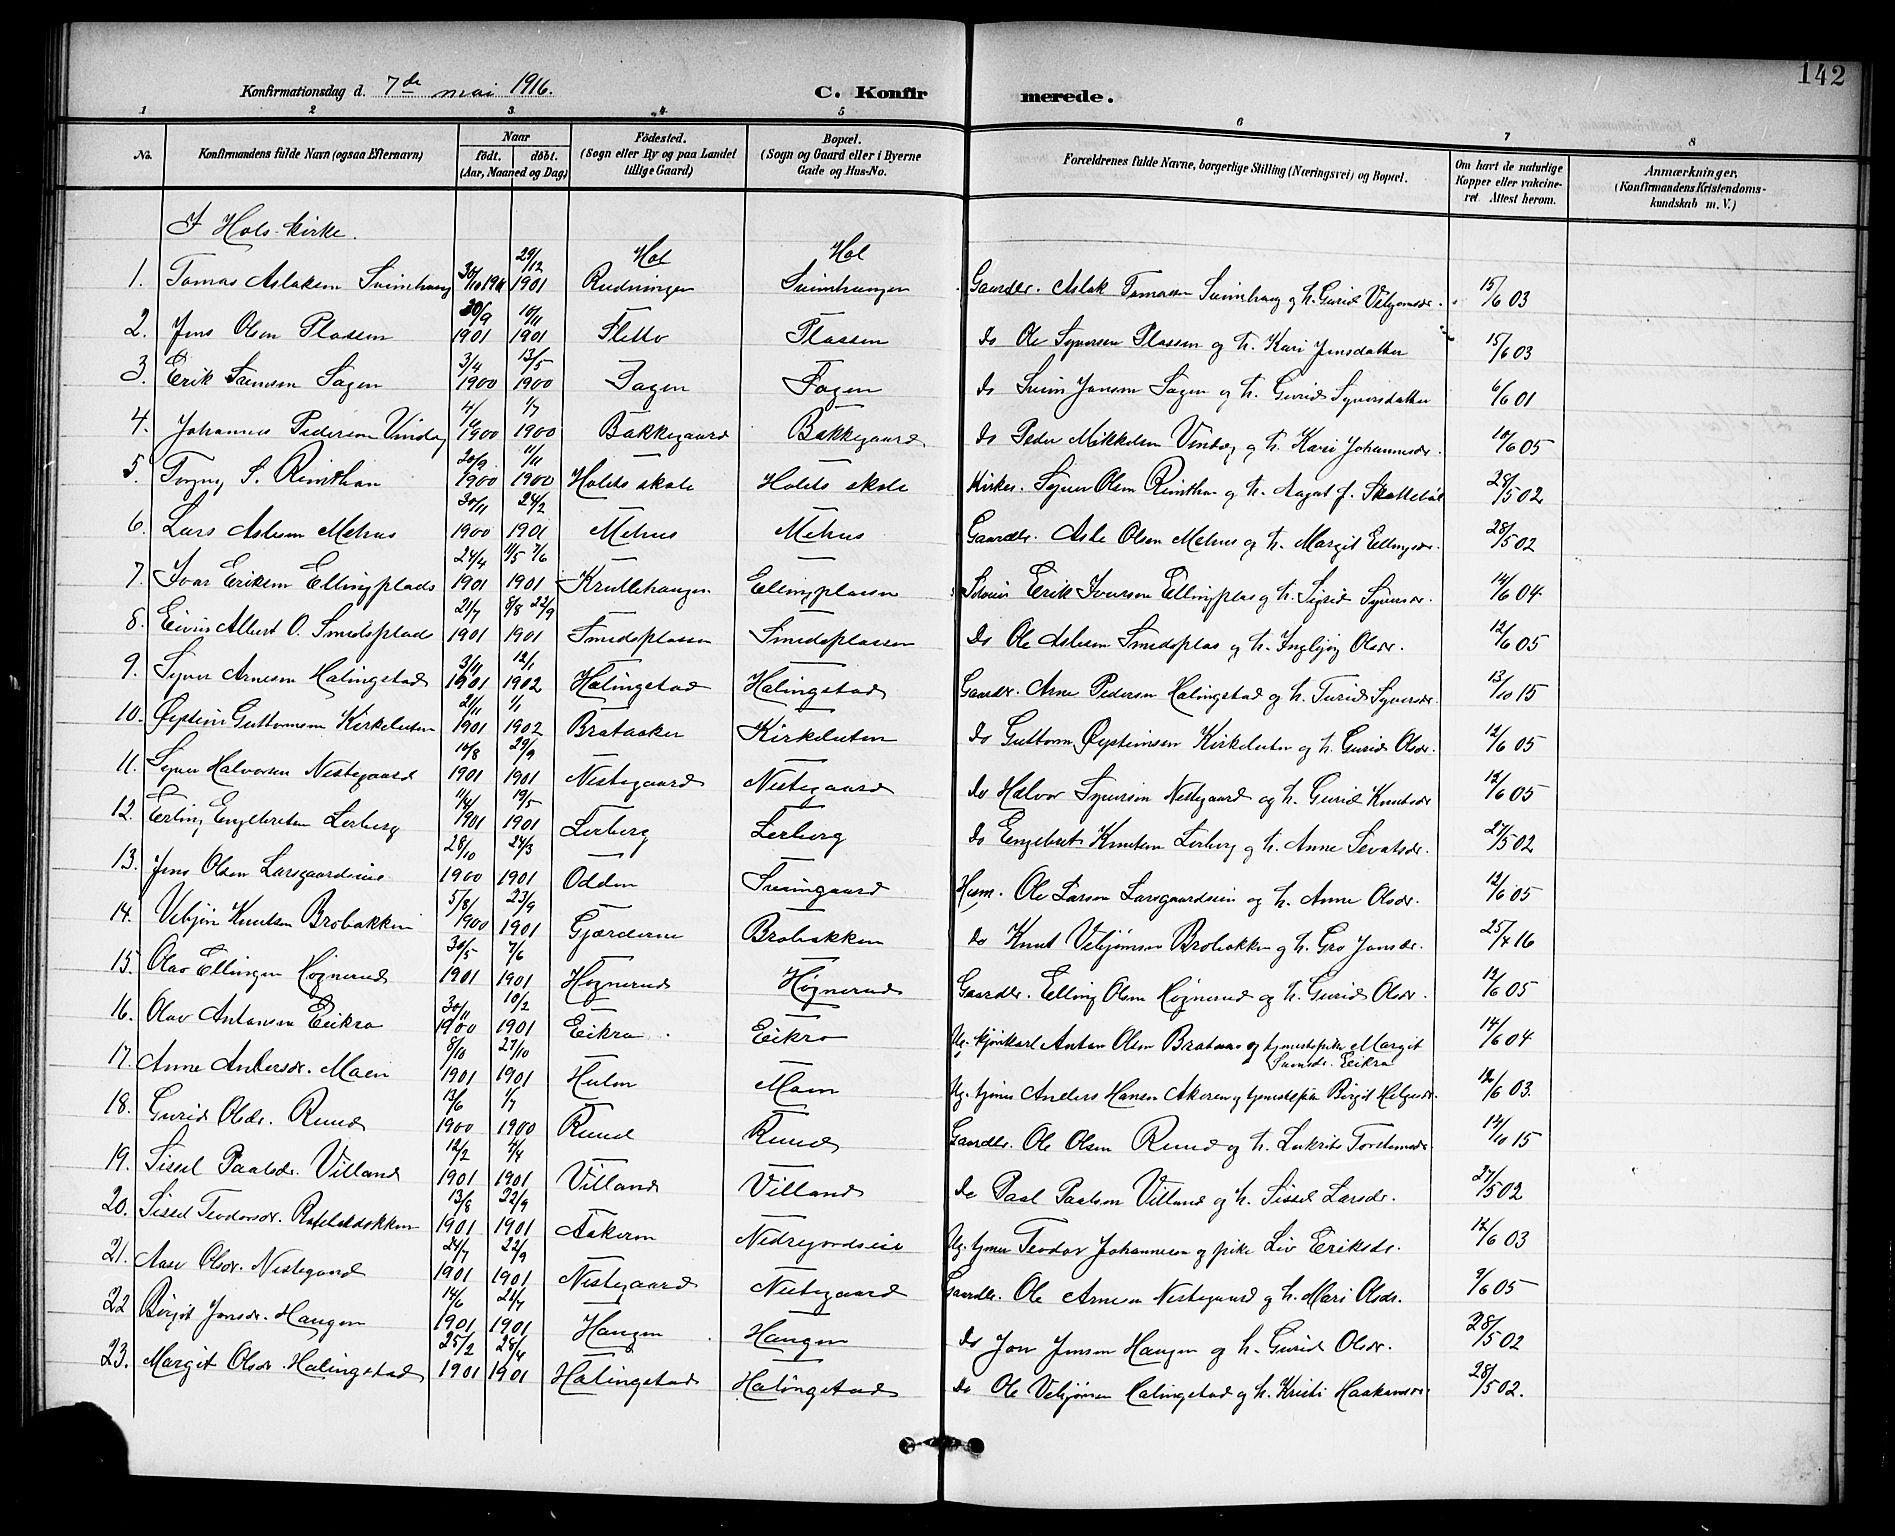 142
Konfirmationsdag d. 7de mai 1916.
C. Konfirmerede.
1 2 3. 4 5 6 7 8
No.
Konfirmandens fulde Navn (ogsaa Efternavn)
Naar
født. døbt.
(Aar, Maaned og Dag)
Fødested.
(Sogn eller By og paa Landet
tillige Gaard)
Bopæl.
(Sogn og Gaard eller i Byerne
Gade og Hus-No.
Forældrenes fulde Navne, borgerlige Stilling (Næringsvei) og Bopæl.
Om havt de naturlige
Kopper eller vakcine-
ret. Attest herom.
Anmærkninger,
(Konfirmandens Kristendoms-
kundskab m. V.)
I Hols kirke.
Hol Hol
1. Tomas Aslaksen Sveinhaug 30/10 1901 29/12 1901 Rudningen Sveinhaugen Gaardbr. Aslak Tomassen Sveinhaug og h. Gurid Vebjørnsdr. 15/6 03
2. Jens Olsen Plassen 30/9 1901 10/11 1901 Fletto Plassen do Ole Syversen Plassen og h. Kari Jensdatter 15/6 03
3. Erik Sveinsen Sagen 3/4 1900 13/5 1900 Sagen Sagen do Svein Jonsen Sagen og h. Gurid Syversdatter 6/6 01
4. Johannes Pedersen Vindeg 4/6 1900 1/7 1900 Bakkegaard Bakkegaard do Peder Mikkelsen Vindeg og h. Kari Johannesdr. 10/6 05
5. Torgny S. Reinthon 20/9 1900 11/11 1900 Holets skole Holets skole Kirkes. Syver Olsen Reinthon og h. Aagot f. Skottebøl 28/5 02
6. Lars Aslesen Mehus 30/11 1900 24/2 1901 Mehus Mehus Gaardbr. Asle Olsen Mehus og h. Margit Ellingsdr. 28/5 02
7. Ivar Eriksen Ellingplads 24/4 1901 11/5 7/6 1901 Krullehaugen Ellingplassen Selveier Erik Iversen Ellingplas og h. Sigrid Syversdr. 14/6 04
8. Eivin Albert O. Smedsplads 21/7 1901 8/8 22/9 1901 Smedsplassen Smedsplassen do Ole Aslesen Smedsplas og h. Ingbjøg Olsdr. 12/6 05
9. Syver Arnesen Halingstad 3/11 1901 12/1 1902 Halingstad Halingstad Gaardbr. Arne Pedersen Halingstad og h. Turid Syversdr. 13/10 15
10. Øystein Guttormsen Kirkeluten 21/11 1901 1/1 1902 Brataaker Kirkeluten do Guttorm Øysteinsen Kirkeluten og h. Gurid Olsdr. 12/6 05
11. Syver Halvorsen Nestegaard 10/8 1901 29/9 1901 Nestegaard Nestegaard do Halvor Syversen Nestegaard og h. Gurid Knutsdr 12/6 05
12. Erling Engebretsen Lerberg 11/4 1901 19/5 1901 Lerberg Lerberg do Engebret Knutsen Lerberg og h. Anne Sevatsdr. 27/5 02
13. Jens Olsen Larsgaardseie 28/10 1900 24/3 1901 Odden Sveingaard Husm. Ole Larsen Larsgaardseie og h. Anne Olsdr. 12/6 05
14. Vebjøn Knutsen Brobakken 5/8 1900 23/9 1901 Gjærderne Brobakken do Knut Vebjønsen Brobakken og h. Gro Jonsdr. 25/4 16
15. Olav Ellingsen Høgnerud 30/5 1901 7/6 1901 Høgnerud Høgnerud Gaardbr. Elling Olsen Høgnerud og h. Gurid Olsdr. 12/6 05
16. Olav Antonsen Eikro 30/11 1900 10/2 1901 Eikro Eikro Ug. skjønkarl Anton Olsen Brataas og tjenestepike Margit
Sveinsdr. Eikro 14/6 04
17. Anne Andersdr. Moen 8/10 1901 27/10 1901 Hulm Moen Ug. tjener Anders Hansen Akeren og tjenestepike Birgit Helgesdr. 12/6 03.
18. Gurid Olsdr. Ruud 13/6 1900 1/7 1900 Ruud Ruud Gaardbr. Ole Olsen Ruud og h. Lukrits Torstensdr 14/10 15
19. Sissel Paalsdr. Villand 12/2 1901 4/4 1901 Villand Villand do Paal Paalsen Villand og h. Sissel Larsdr. 27/5 02
20. Sissel Teodorsdr. 13/8 1901 22/9 1901 Aakeren Nedregordseie Ug. tjener Teodor Johannesen og pike Liv Eriksdr. 12/6 03
21. Aase Olsdr. Nestegaard 24/7 1901 22/9 1901 Nestegaard Nestegaard Gaardbr. Ole Arnesen Nestegaard og h. Mari Olsdr. 9/6 05
22 Birgit Jonsdr. Haugen 14/6 1901 21/7 1901 Haugen Haugen do Jon Jensen Haugen og h. Gurid Olsdr. 28/5 02
23. Margit Olsdr. Halingstad 25/2 1901 28/4 1901 Halingstad Halingstad do Ole Vebjønsen Halingstad og h. Kristi Haakonsdr. 28/5 02.